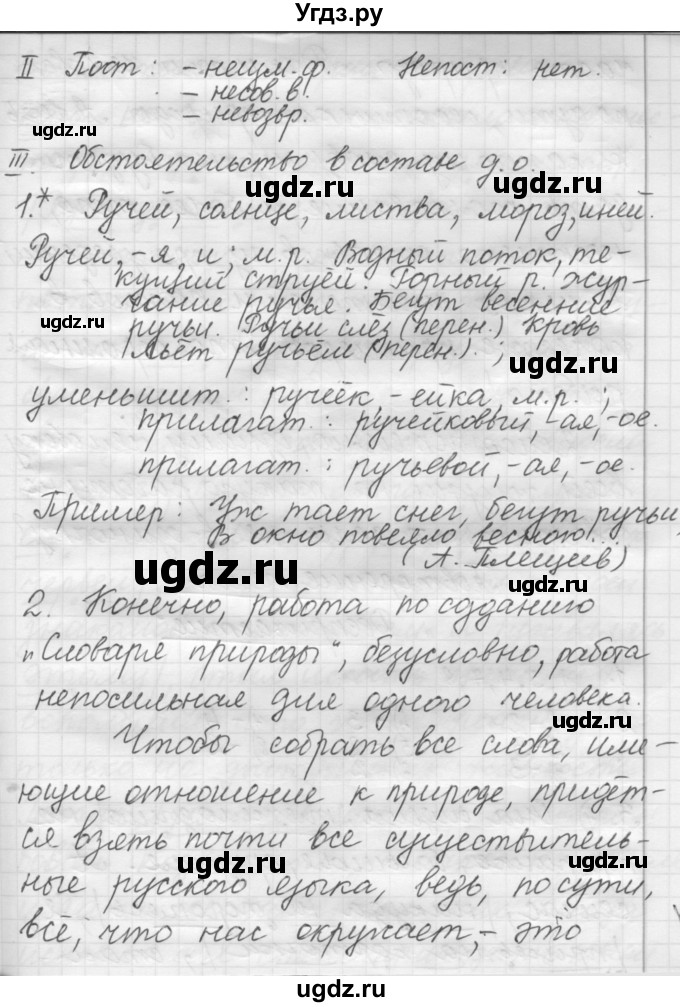 Угдз.ру
II Пост: - неизм. ф. Непост: нет.
- несов. в.
- невозвр.
ugdz.ru
III. Обстоятельство в составе д. о.
ugdz.ru
1.* Ручей, солнце, листва, мороз, иней.
Ручей, -я, и; м. р. Водный поток, те-
кущий струёй. Горный р. Жур-
чание ручья. Бегут весенние
ugdz.ru
ручьи. Ручьи слёз (перен.) Кровь
льёт ручьём (перен.). ;
ugdz.ru
уменьшит.: ручеёк, -ейка, м. р. ;
прилагат.: ручейковый, -ая, -ое.
ugdz.ru
прилагат.: ручьевой, -ая, -ое.
Пример: Уж тает снег, бегут ручьи,
В окно повеяло весною...
ugdz.ru
(А. Плещеев)
ugdz.ru
2. Конечно, работа по созданию
„Словаря природы", безусловно, работа
ugdz.ru
непосильная для одного человека.
ugdz.ru
Чтобы собрать все слова, име-
ющие отношение к природе, придёт-
ся взять почти все существитель-
ugdz.ru
ugdz.ru
ные русского языка, ведь, по сути,
всё, что нас окружает, - это
ugdz.ru